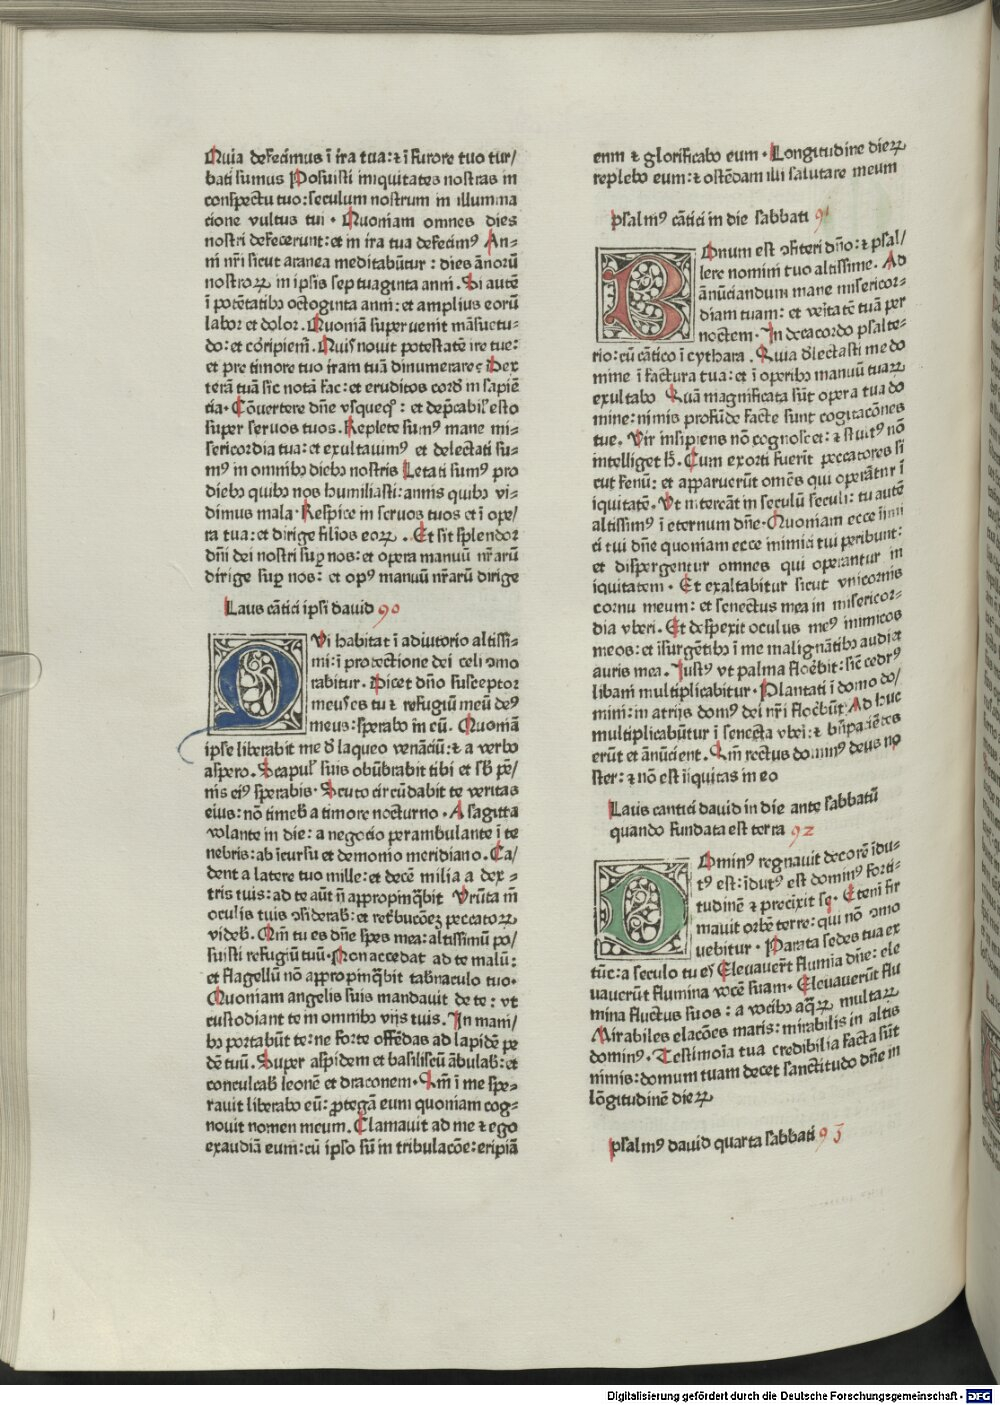 Quia defecimus ī ira tua: ⁊ ī furore tuo tur/
bati sumus Posuisti iniquitates nostras in
conspectu tuo: seculum nostrum in illumina
cione vultus tui · Quoniam omnes dies
nostri defecerunt: et in ira tua defecimꝰ An⸗
ni nr̄i sicut aranea meditabūtur : dies ānorū
nostroꝝ in ipsis septuaginta anni. Si autē
ī potētatibꝰ octoginta anni: et amplius eorū
labor et dolor. Quoniā supervenit māsuetu⸗
do: et corripiem̄. Quis novit potestatē ire tue:
et pre timore tuo iram tuā dinumerare Dex
terā tuā sic notā fac: et eruditos cord̄ in sapiē
tia· Cōvertere dn̄e vsquequo : et dep̄cabil' esto
super servos tuos. Replete sumꝰ mane mi⸗
sericordia tua: et exultavimꝰ et delectati su⸗
mꝰ in omnibꝰ diebꝰ nostris Letati sumꝰ pro
diebꝰ quibꝰ nos humiliasti: annis quibꝰ vi⸗
dimus mala · Respice in servos tuos et ī ope/
ra tua: et dirige filios eoꝝ . Et sit splendor
dn̄i dei nostri suꝑ nos: et opera manuū nr̄arū
dirige suꝑ nos: et opꝰ manuū nr̄arū dirige
Laus cātici ipsi david 90
Qui habitat ī adiutorio altissi⸗
mi: ī protectione dei celi ↄmo
rabitur. Dicet dn̄o susceptor
meus es tu ⁊ refugiū meū deꝰ
meus: sperabo in eū. Quoniā
ipse liberabit me d̄ laqueo venāciū: ⁊ a verbo
aspero. Scapul' suis obūbrabit tibi et sb̄ pē⸗
nis eiꝰ sperabis· Scuto circūdabit te veritas
eius: nō timeb̄ a timore nocturno · A sagitta
volante in die: a negotio perambulante ī te
nebris: ab īcursu et demonio meridiano. Ca/
dent a latere tuo mille: et decē milia a dex ⸗
tris tuis: ad te aūt n̄ appropinq̄bit Verūta m̄
oculis tuis ↄsiderab̄: et ret'bucōeꝫ peccatoꝝ
videb̄. Qm̄ tu es dn̄e spes mea: altissimū po/
suisti refugiū tuū· Non accedat ad te malū:
et flagellū nō appropinq̄bit tab'naculo tuo·
Quoniam angelis suis mandavit de te : vt
custodiant te in omnibꝰ vijs tuis. In mani/
bꝰ portabūt te: ne forte offēdas ad lapidē pe
dē tuū. Super aspidem et basiliscū ābulab̄: et
conculcab̄ leonē et draconem· Qm̄ ī me spe⸗
ravit liberabo eū: ꝓtegā eum quoniam cog⸗
novit nomen meum. Clamavit ad me ⁊ ego
exaudiā eum: cū ipso sū in tribulacōe: eripiā
eum ⁊ glorificabo eum · Longitudine dieꝝ
replebo eum: ⁊ ostēdam illi salutare meum
psalmꝰ cātici in die sabbati 91
Bonum est ↄfiteri dn̄o: ⁊ psal/
lere nomini tuo altissime. Ad
ānūciandum mane misericor⸗
diam tuam: et veritatē tuā per
noctem · In decacordo psalte⸗
rio: cū cātico ī cythara . Quia d'lectasti me do
mine ī factura tua: et ī operibꝰ manuū tuaꝝ
exultabo Quā magnificata sūt opera tua do
mine: nimis profūde facte sunt cogitacōnes
tue. Vir insipiens nō cognoscet: ⁊ stultꝰ nō
intelliget h̄. Cum exorti fuerīt peccatores si
cut fenū: et apparuerūt omēs qui operātur ī
iquitatē. Vt intereāt in seculū seculi: tu autē
altissimꝰ ī eternum dn̄e · Quoniam ecce īimi
ci tui dn̄e quoniam ecce inimici tui peribunt:
et dispergentur omnes qui operantur in
iquitatem · Et exaltabitur sicut vnicornis
cornu meum: et senectus mea in misericor⸗
dia vberi. Et despexit oculus meꝰ inimicos
meos: et īsurgētibꝰ ī me malignātibꝰ audiet
auris mea. Justꝰ vt palma floreb̄it: sic̄ cedrꝰ
libani multiplicabitur · Plantati ī domo do/
mini: in atrijs domꝰ dei nr̄i florēbūt Ad huc
multiplicabūtur ī senecta vberi: ⁊ bn̄pacientes
erūt et ānūcient. Qm̄ rectus dominꝰ deus no
ster: ⁊ nō est īiquitas in eo
Laus cantici david in die ante sabbatū
quando fundata est terra 92
Dominꝰ regnavit decorē īdu⸗
tꝰ est: īdutꝰ est dominꝰ forti⸗
tudinē ⁊ precixit se. Eteni fir
mavit orbē terre: qui nō ↄmo
uebitur · Parata sedes tua ex
tūc: a seculo tu es Elevauer̄t flumia dn̄e: ele
vauerūt flumina vocē suam· Elevauerūt flu
mina fluctus suos : a vocibꝰ aq̄ꝝ multaꝝ
Mirabiles elacōes maris: mirabilis in altis
dominꝰ. Testimoīa tua credibilia facta sūt
nimis: domum tuam decet sanctitudo dn̄e in
lōgitudinē dieꝝ
psalmꝰ david quarta sabbati 93
Digitalisierung gefördert durch die Deutsche Forschungsgemeinschaft · DFG